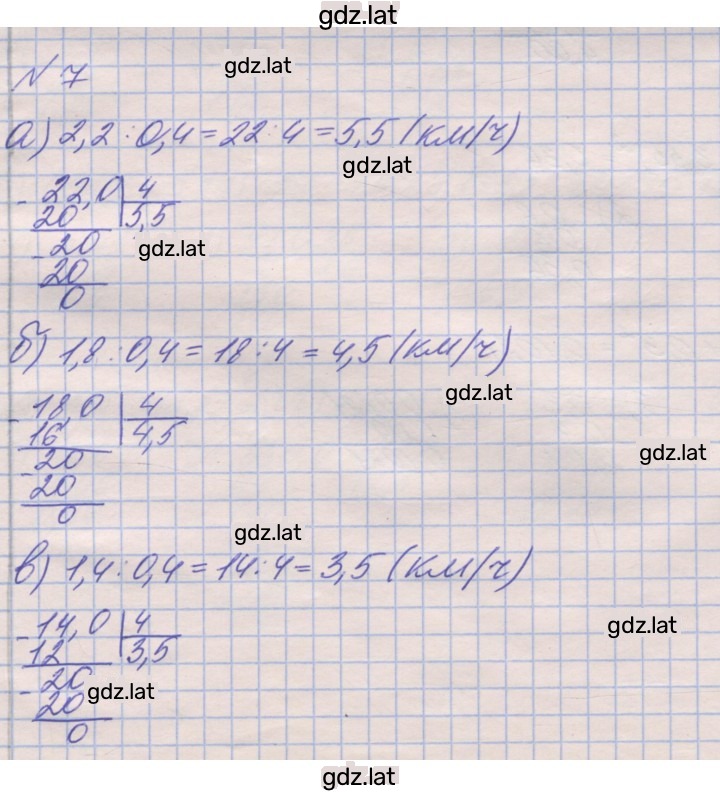 gdz.lat
№ 7
gdz.lat
а) 2,2 : 0,4 = 22 : 4 = 5,5 (км/ч)
gdz.lat
- 22,0 | 4
20 | 5,5
- 20
gdz.lat
20
0
б) 1,8 : 0,4 = 18 : 4 = 4,5 (км/ч)
gdz.lat
- 18,0 | 4
16 | 4,5
gdz.lat
- 20
20
0
gdz.lat
в) 1,4 : 0,4 = 14 : 4 = 3,5 (км/ч)
- 14,0 | 4
gdz.lat
12 | 3,5
- 20
gdz.lat
20
0
gdz.lat